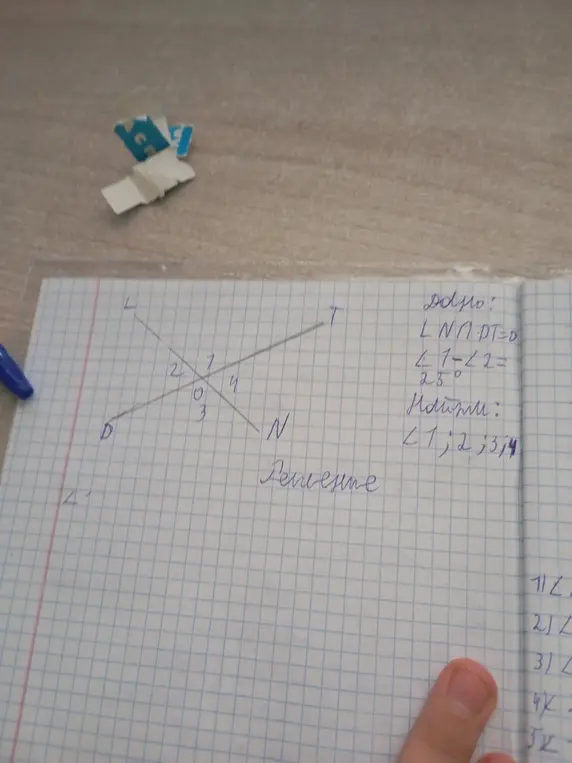 L
T
2 1 4
O
3
D
N
Дано:
LN∩DT=O
∠1-∠2=
25°
Найти:
∠1;2;3;4
Решение
∠1
1) ∠
2) ∠
3) ∠